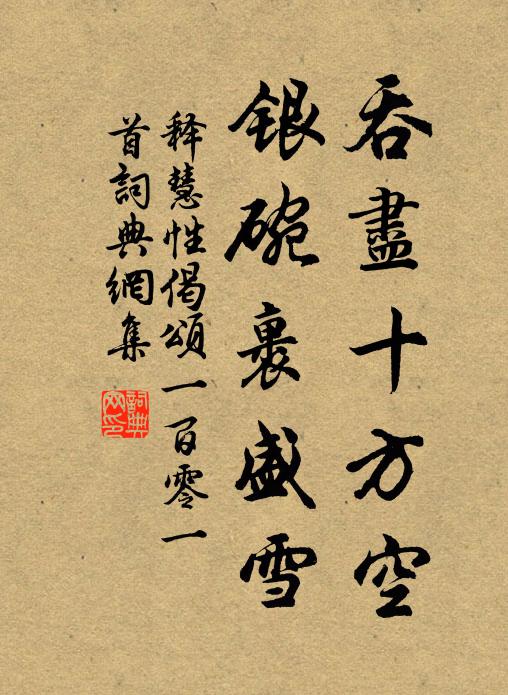 吞盡十方空
銀碗裏盛雪
釋慧性偈頌一百零一
首詞典網集
詞典
网印